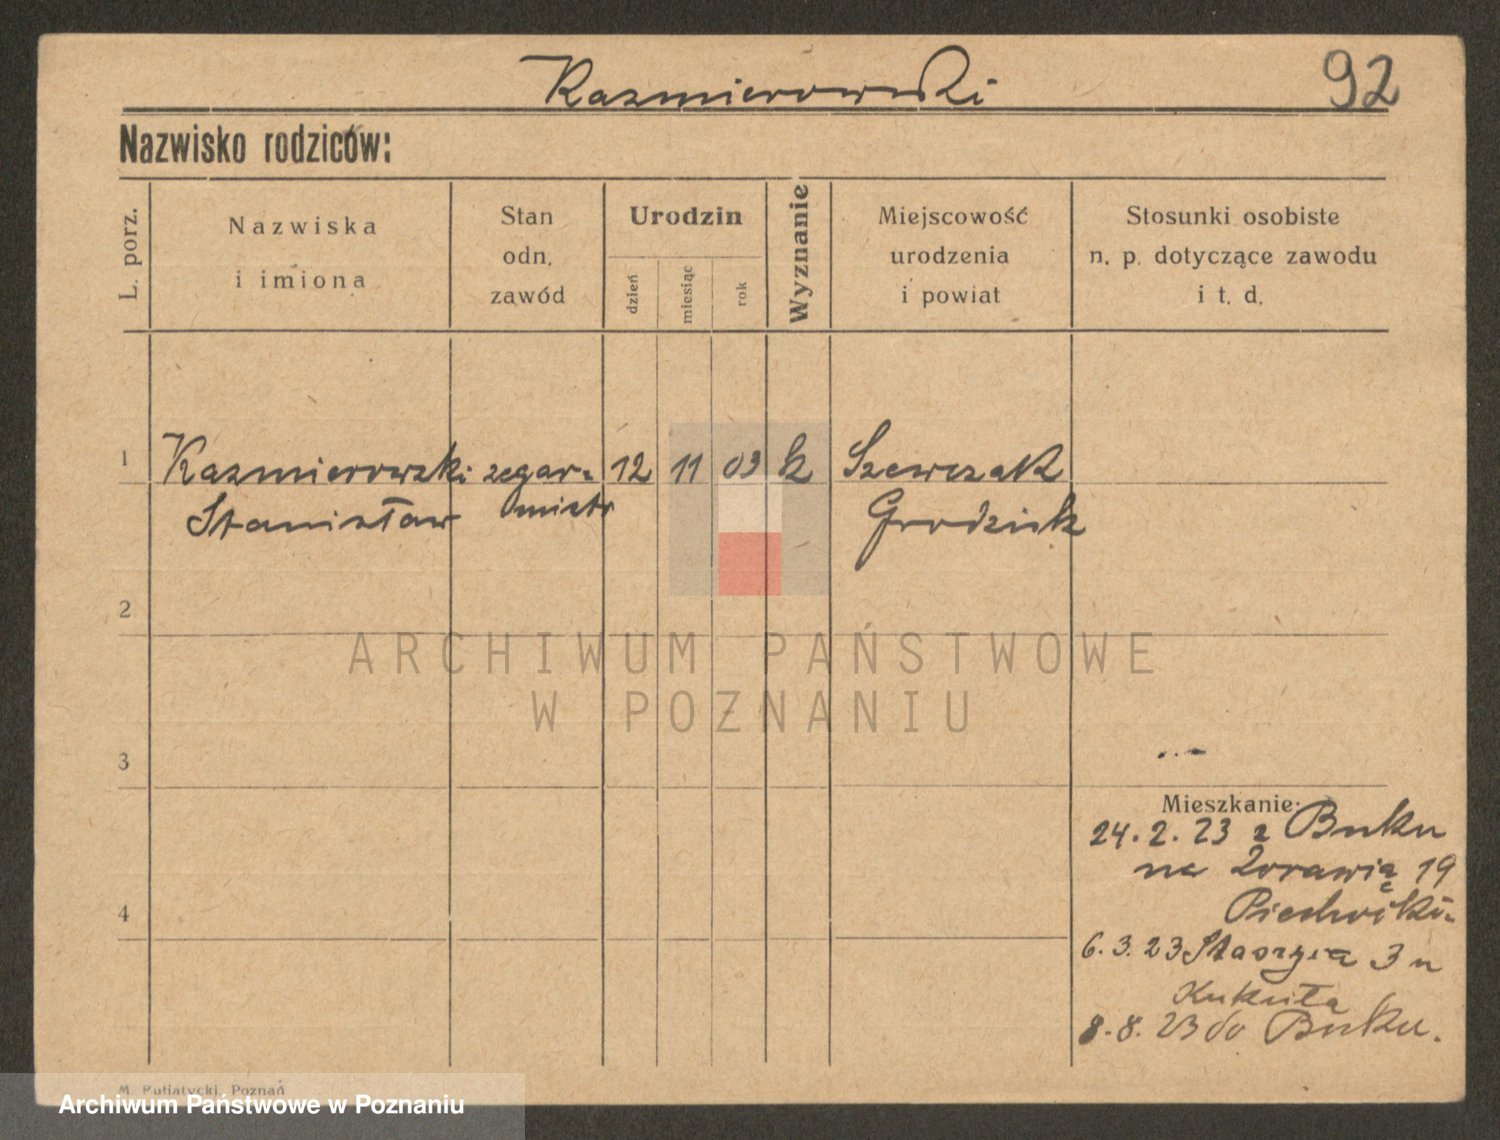 Kazmierowski 92
Nazwisko rodziców:
L. porz.
Nazwiska
i imiona
Stan
odn.
zawód
Urodzin
dzień
miesiąc
rok
Wyznanie
Miejscowość
urodzenia
i powiat
Stosunki osobiste
n. p. dotyczące zawodu
i t. d.
1 Kazmierowski zegar- 12 11 03 k Szewczak
Stanisław mistr Grodzisk
2
ARCHIWUM PAŃSTWOWE
W POZNANIU
3
Mieszkanie:
24.2.23 z Buku
na 19
4
6.3.23 3 u
Kukuła
8.8.23 do Buku.
M. Putiatycki, Poznań
Archiwum Państwowe w Poznaniu